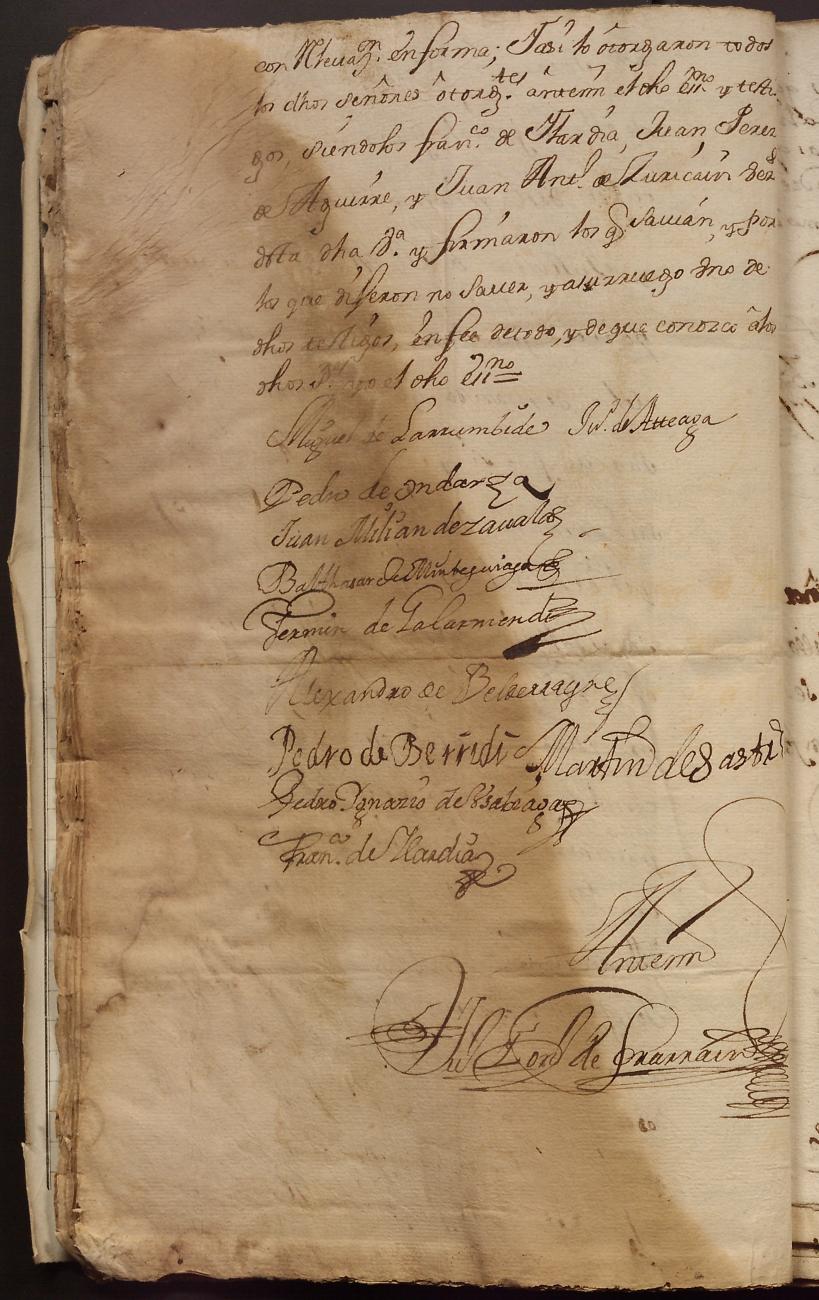 con Relevaz.n en forma; Y asi lo otorgaron todos
los dhos señores otorg.tes antemi el dho ess.no y testi
gos, siendolos fran.co de Ylardia, Juan Perez
de Aguirre, y Juan Ant.o de Yuricain vez.s
desta dha v.a y firmaron los q savian, y por
los que dijeron no saver, y a su rruego uno de
dhos testigos, en fee de todo, y de que conozco a los
dhos yo el dho ess.no
Miguel de Larrumbide Ju.o de Atteaga
Pedro de Endarza
Juan Milian de Zavala
Balthasar de Minteguiaga
Fermin de Galarmendi
Alexandro de
Pedro de Berridi Martin de Sasti
Pedro Ygnazio de
Fran.co de Ylardia
Antemi
de Ynarrain